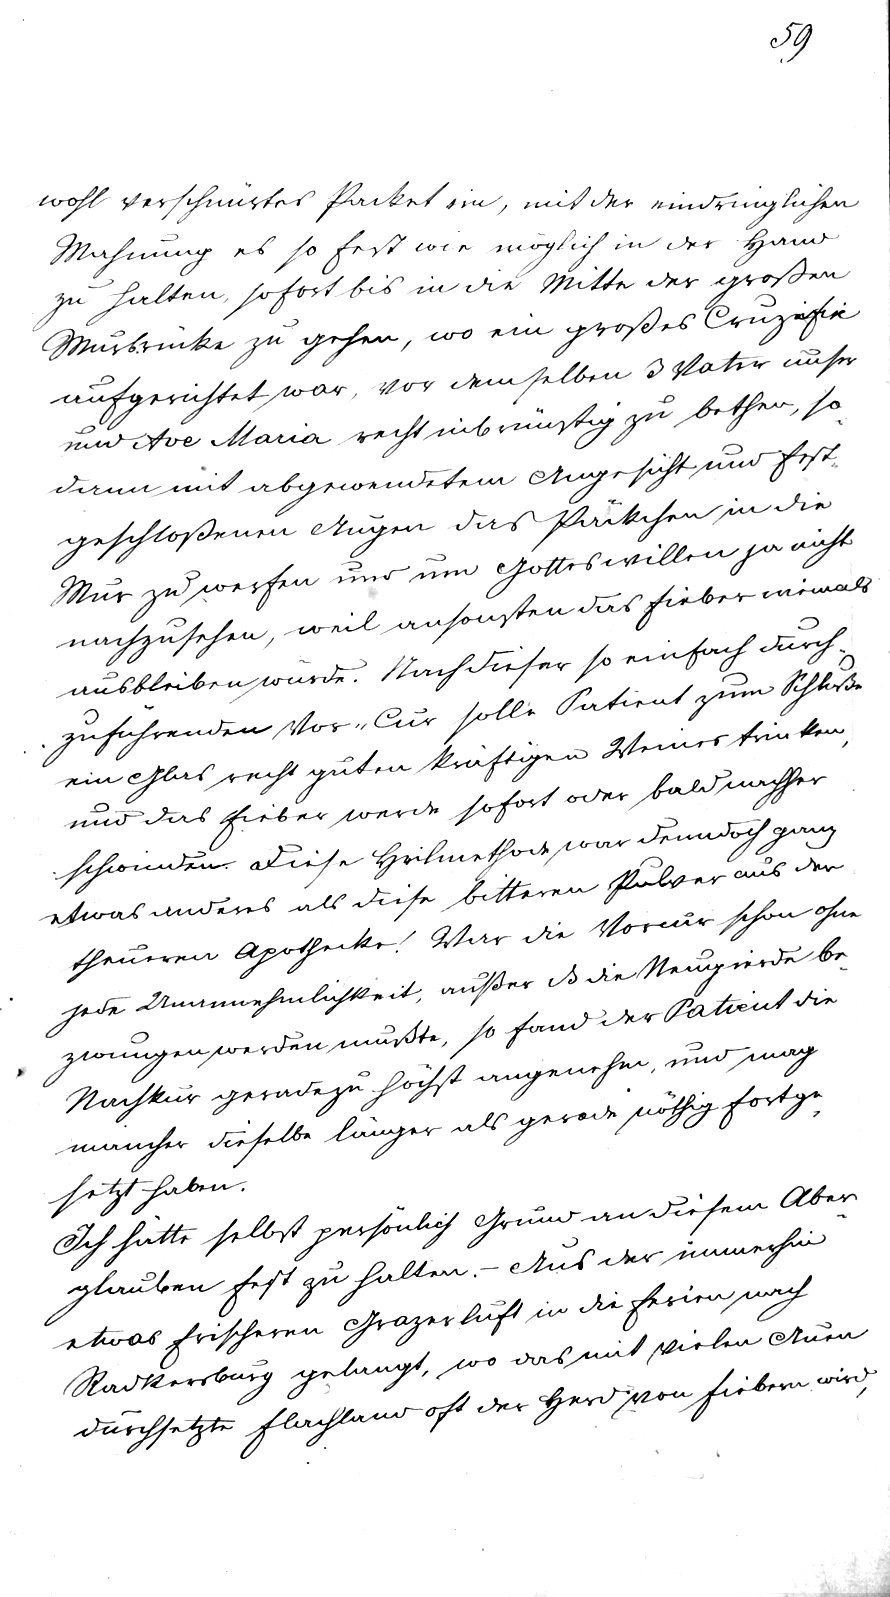 59
wohl verschnürtes Packet ein, mit der eindringlichen
Mahnung es so fest wie möglich in der Hand
zu halten, sofort bis in die Mitte der großen
Murbrücke zu gehen, wo ein großes Cruzifix
aufgerichtet war, vor demselben 3 Vater unser
und Ave Maria recht inbrünstig zu bethen, so-
dann mit abgewendetem Angesicht und fest-
geschloßenen Augen das Päckchen in die
Mur zu werfen und um Gottes willen ja nicht
nachzusehen, weil ansonsten das Fieber niemals
ausbleiben würde. Nach dieser so einfach durch-
zuführenden Vor-Cur solle Patient zum Schluße
ein Glas recht guten kräftigen Weines trinken,
und das Fieber werde sofort oder bald nachher
schwinden. Diese Heilmethode war denndoch ganz
etwas anderes als diese bitteren Pulver aus der
theueren Apothecke! War die Vorcur schon ohne
jede Unannehmlichkeit, außer ds die Neugierde be-
zwungen werden mußte, so fand der Patient die
Nachkur geradezu höchst angenehm, und mag
mancher dieselbe länger als gerade nöthig fortge-
setzt haben.
Ich hätte selbst persönlich Grund an diesem Aber-
glauben fest zu halten. – Aus der immerhin
etwas frischeren Grazerluft in die Ferien nach
Radkersburg gelangt, wo das mit vielen Auen
durchsetzte Flachland oft der Herd von Fiebern wird,